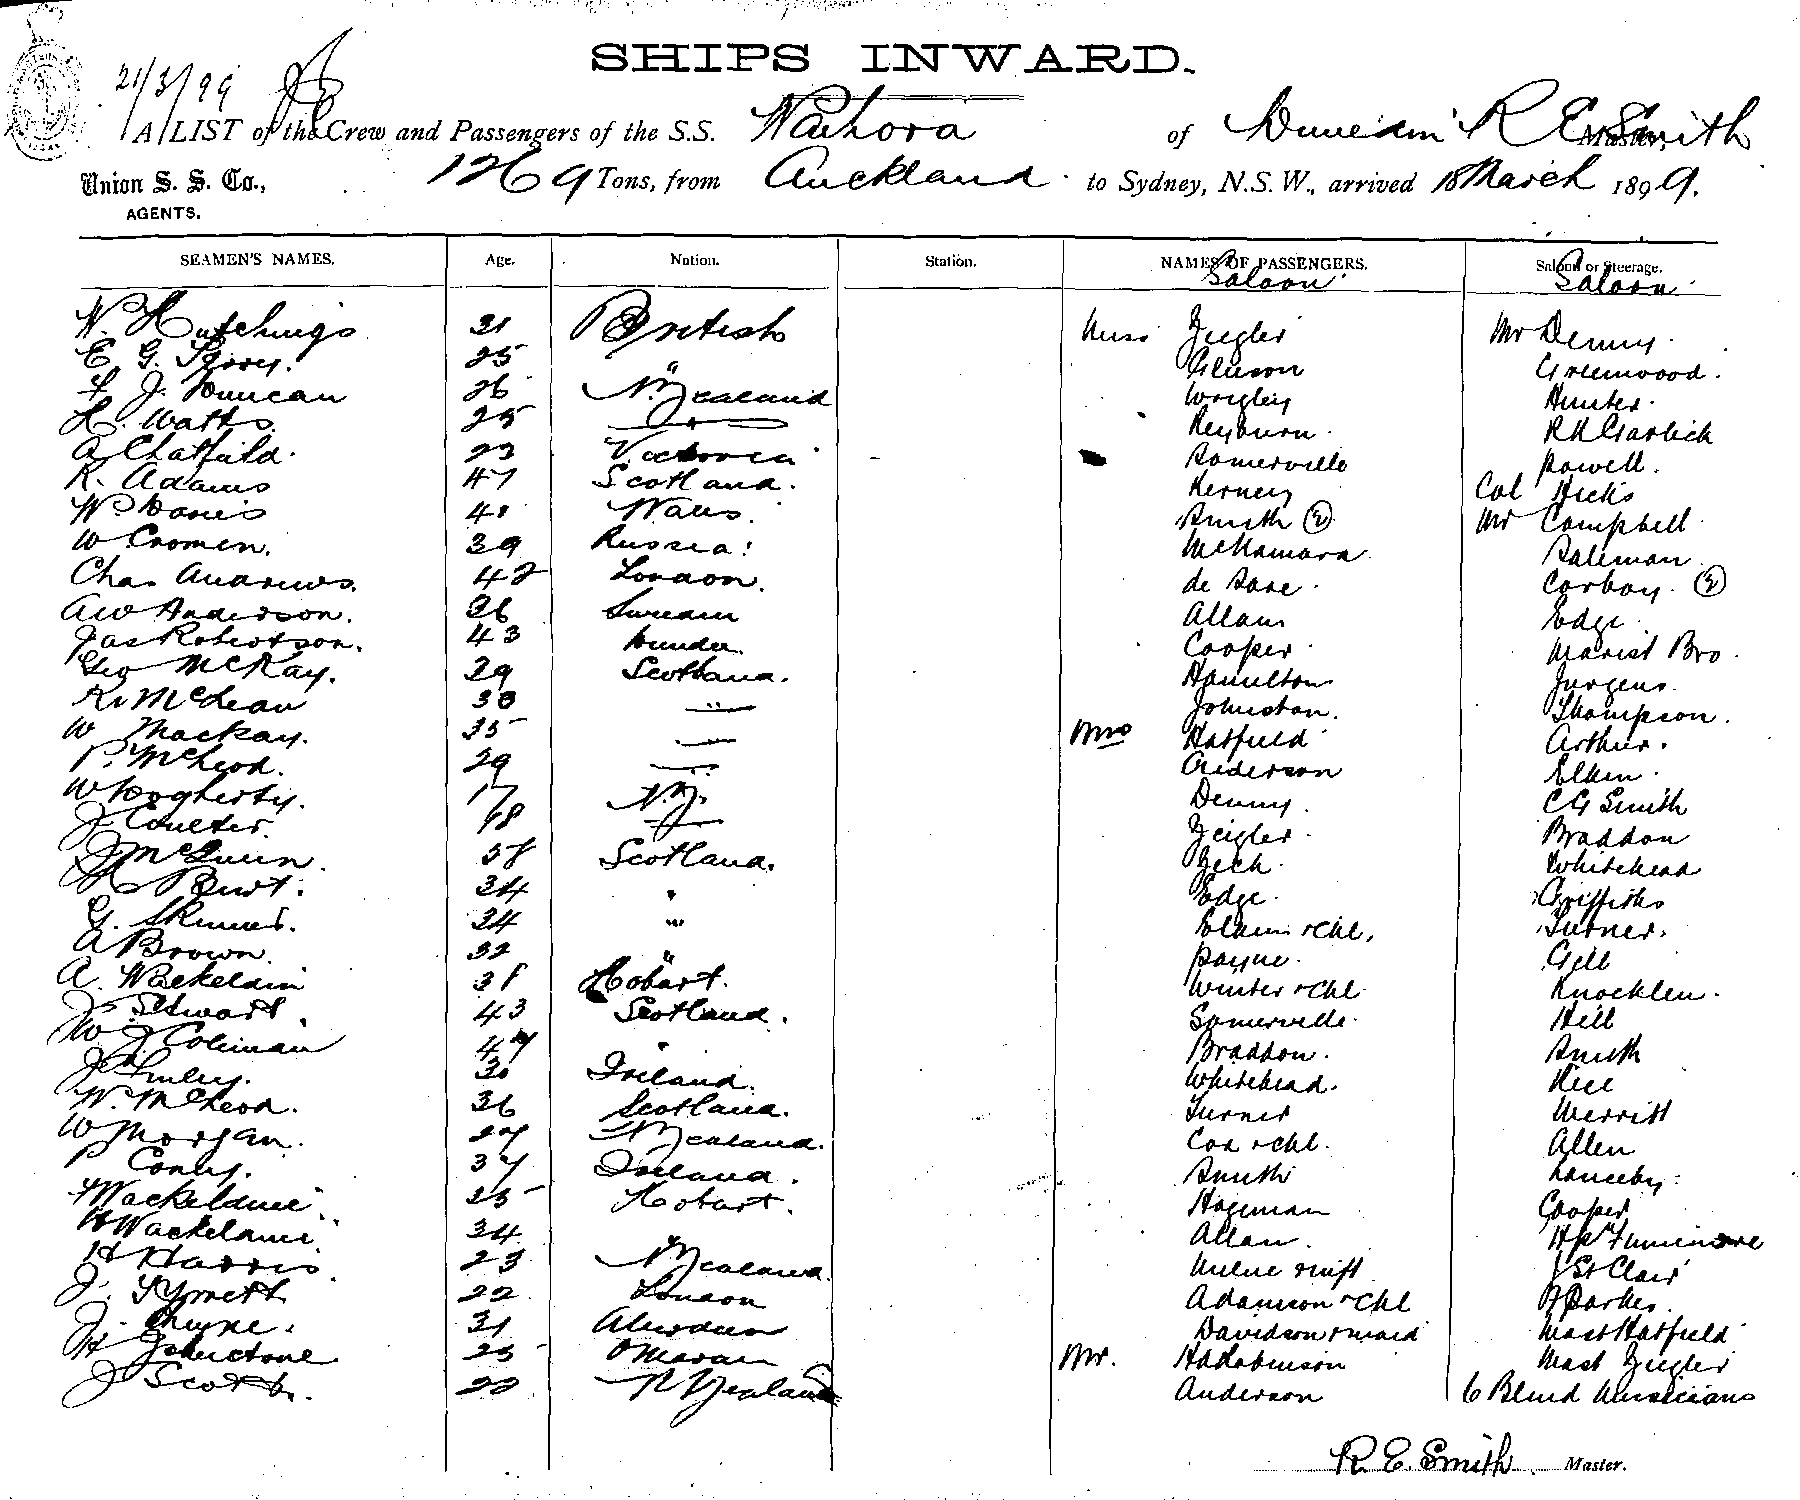 SHIPS INWARD.
21/3/99
A LIST of the Crew and Passengers of the S.S. Waihora of Dunedin R E Smith Master,
Union S. S. Co., 1269 Tons, from Auckland to Sydney, N.S.W., arrived 18 March 1899.
AGENTS.
SEAMEN'S NAMES. Age. Nation. Station. NAMES OF PASSENGERS. Saloon or Steerage.
Saloon Saloon
N. Hutchings 31 British Miss Zeigler Mr Denny.
E. G. 25 " Gleeson Greenwood.
F. J. Duncan 26 N. Zealand Wrigley Hunter.
H. Watts. 25 Reyburn. R H Garlick
A Chatfield. 23 Victoria Somerville Powell.
R. Adams 47 Scotland. Kerney Col Hicks
W Davies 41 Wales. Smith (2) Mr Campbell
W Cromen. 39 Russia. McNamara Saleman
Chas Andrews. 42 London. de Sare. Corboy. (2)
A W Anderson. 36 Sweden Allan Edge
Jas Robertson. 43 Dundee. Cooper. Marist Bro.
Geo McKay. 29 Scotland. Hamilton Jurgens.
R. McLean 38 " Johnston. Thompson.
W Mackay. 35 Mrs Hatfield Arthur.
P. McLeod. 29 Anderson Elkin.
W Dogherty. 17 N.Z. Denny. C G Smith
J Coulter. 18 Zeigler. Braddon
J McQuin 38 Scotland. Zech. Whitehead
Burt. 34 " Edge. Griffiths
G. Skinner. 34 " & Chl. Turner.
A Brown. 32 " Payne. Gill
A. Wackeldin 31 Hobart. Winter & Chl Knocklen.
J Stewart. 43 Scotland. Somerville. Hill
W J Coleman 47 " Braddon. Smith
J Finley. 30 Ireland. Whitehead. Rice
N. McLeod. 36 Scotland. Turner Merritt
W Morgan. 27 N Zealand. Cox & Chl. Allen
P Conly. 37 Ireland. Smith
Wackeldine. 25 Hobart. Hageman Cooper
H Wackeldine. 34 " Allan.
H Harris. 23 N Zealand. Milne & inft J St Clair
J. 22 London Adamson & Chl Parkes.
J. Cheyne. 31 Aberdeen Davidson & maid Mast Hatfield
H Johnstone 25 Omaru Mr. H A Robinson Mast Zeigler
J Scott. 20 N Zealand Anderson 6 Blind Musicians
R. E. Smith Master.